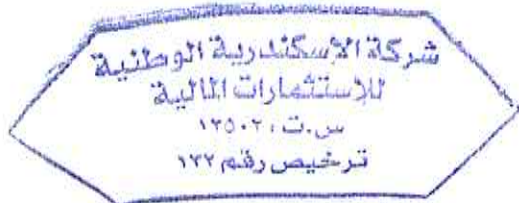 شركة الاسكندرية الوطنية
للاستثمارات المالية
س.ت : ١٣٥٠٢
ترخيص رقم ١٣٢